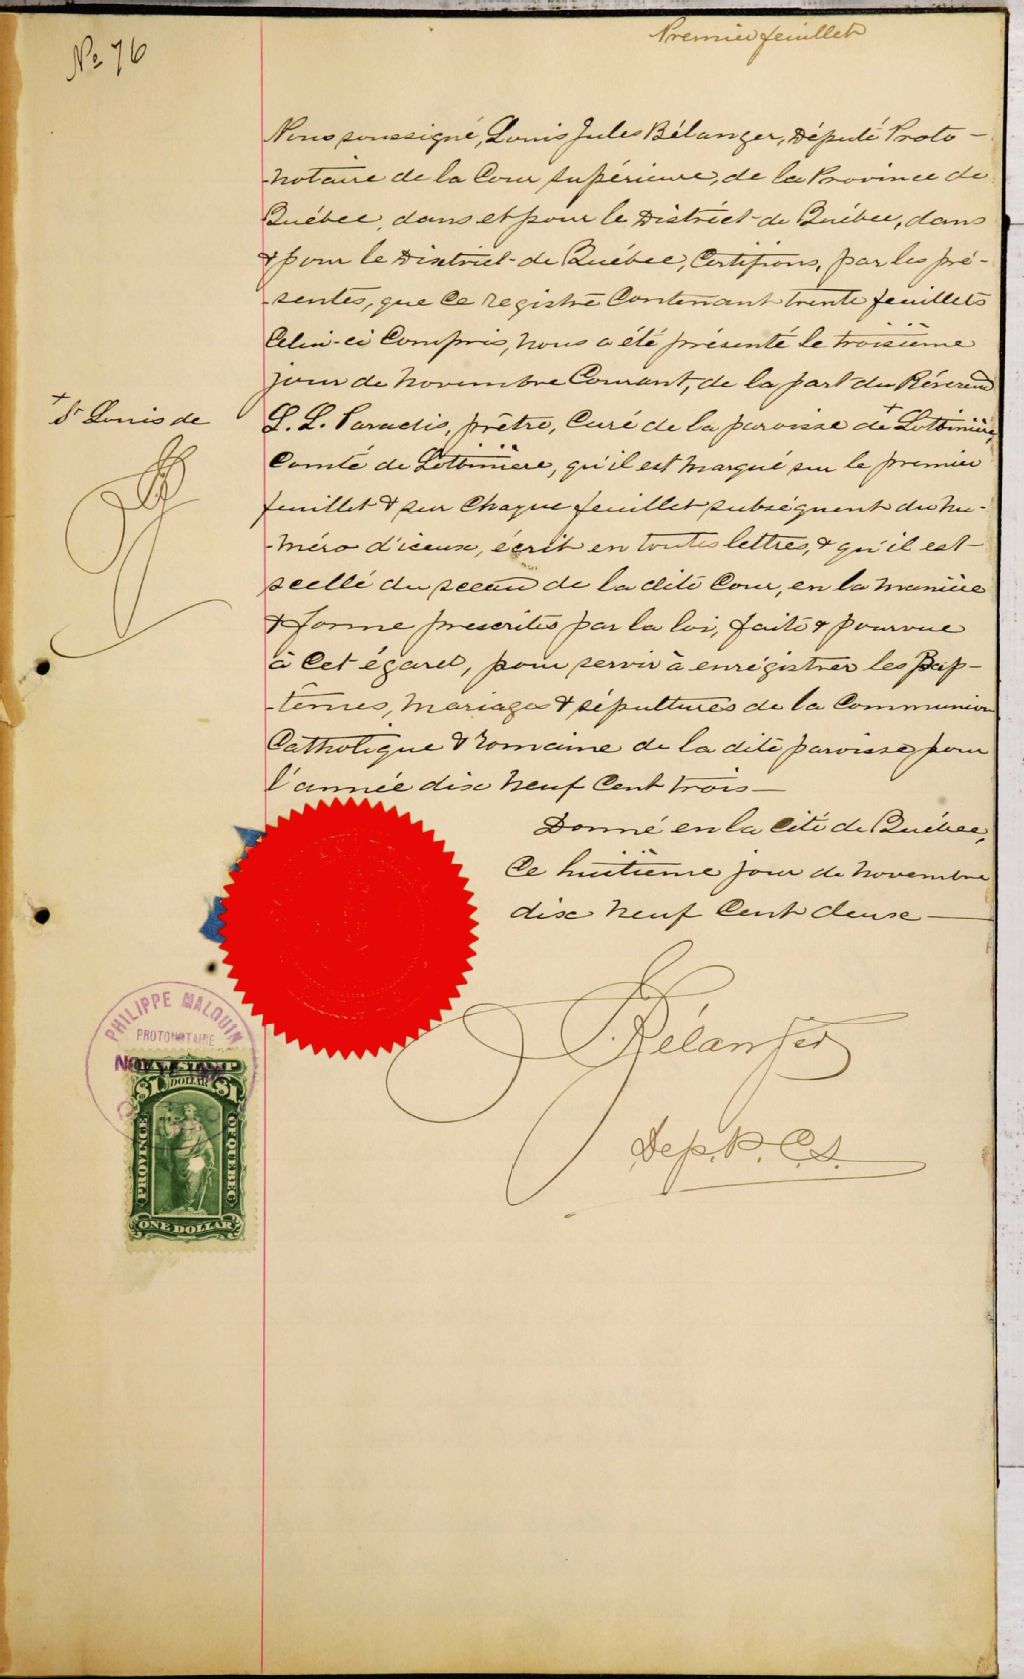 Premier feuillet
No 76
Nous soussigné, Louis Jules Bélanger, Député Proto-
-notaire de la Cour Supérieure, de la Province de
Québec, dans et pour le District de Québec, dans
& pour le District de Québec, Certifions, par les pré-
-sentes, que ce registre contenant trente feuillets
celui-ci compris, nous a été présenté le troisième
jour de novembre courant, de la part du Révérend
+ St Louis de
L. L. Paradis, prêtre, Curé de la paroisse de + Lotbinière,
Comté de Lotbinière, qu'il est marqué sur le premier
feuillet & sur chaque feuillet subséquent du nu-
-méro d'iceux, écrit en toutes lettres, & qu'il est
scellé du sceau de la dite Cour, en la manière
& forme prescrites par la loi, faite & pourvue
à cet égard, pour servir à enrégistrer les Bap-
-têmes, mariages & sépultures de la Communion
Catholique & Romaine de la dite paroisse pour
l'année dix neuf cent trois —
Donné en la cité de Québec,
ce huitième jour de novembre
dix neuf cent deux —
Bélanger
Dep. P. C. S.
PHILIPPE MALOUIN
PROTONOTAIRE
NOV
$1 DOLLAR $1
PROVINCE OF QUEBEC
ONE DOLLAR